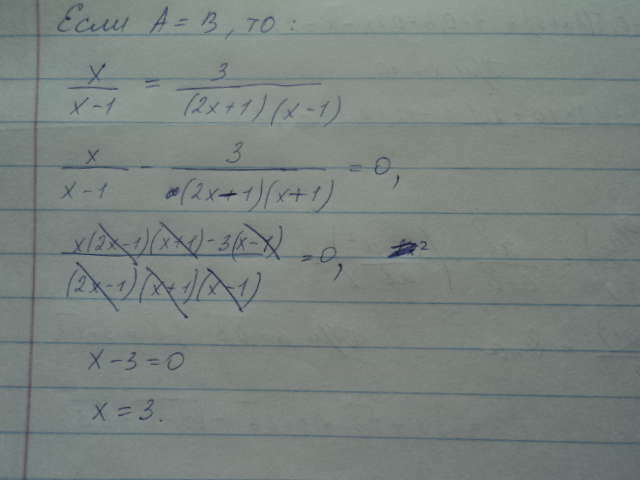 Если A = B, то:
x/(x-1) = 3/((2x+1)(x-1))
x/(x-1) - 3/((2x+1)(x+1)) = 0,
(x(2x-1)(x+1)-3(x-1))/((2x-1)(x+1)(x-1)) = 0,
x-3=0
x=3.